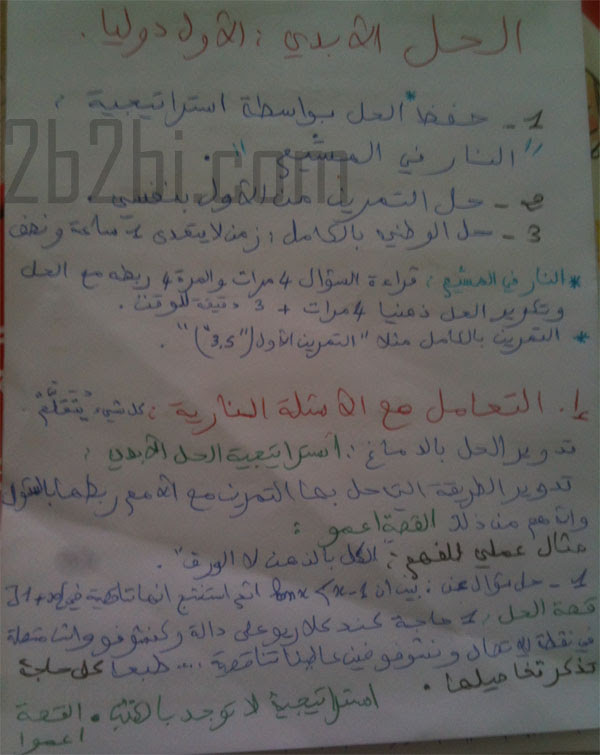 الحل الأبدي : الأول دوليا .
1 - حفظ الحل بواسطة استراتيجية :
" النار في المشيع " .
2b2bi.com
2 - حل التمرين من الأول بنفسي .
3 - حل الوطني بالكامل : زمن لا يتعدى 1 ساعة ونصف
* النار في المشيع : قراءة السؤال 4 مرات والمرة 4 ربطه مع الحل
وتكوير الحل ذهنيا 4 مرات + 3 دقيقة للوقت .
* التمرين بالكامل مثلا " التمرين الأول ( "3,5" ) " .
إ . التعامل مع الأسئلة النارية : كلشي يُتَعَلَّم .
تدوير الحل بالدماغ : استراتيجية الحل الأبدي :
تدوير الطريقة التي حل بها التمرين مع الأم مع ربطها بالسؤال
والأهم من ذلك القصة اعمو :
مثال عملي للفهم : " الحل بالذهن لا الورق " .
1 - حل سؤال عن : بين أن lnx < x-1 ثم استنتج انها تناقصية في
قصة الحل : 1 حاجة عند كلا ريو على دالة وكنشوفو واش متصلة
في نقطة ونشوفو فين غاليا تناقصة ... طبعا كل حاجة
تذكر تفاصيلها .
استراتيجية لا توجد بالكتب . القصة
اعموا